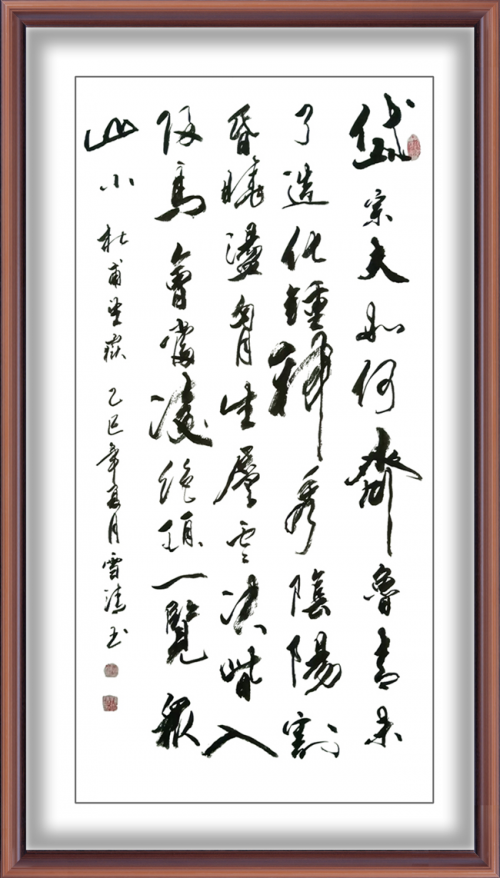 岱宗夫如何齊魯青未
了造化鍾神秀陰陽割
昏曉盪胸生層雲決眥入
歸鳥會當凌絕頂一覽眾
山小 杜甫望嶽 乙巳年夏月雪